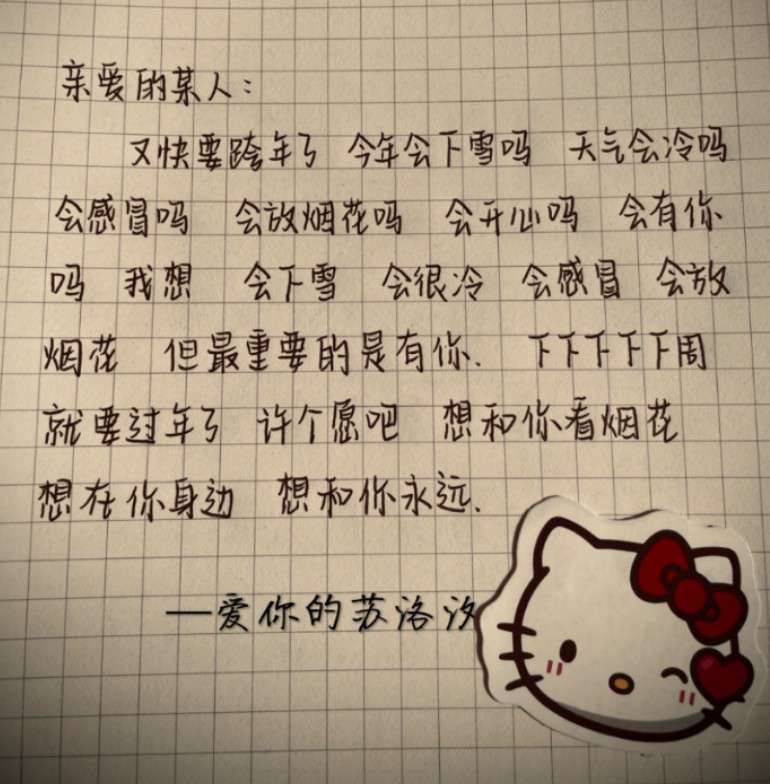 亲爱的某人:
又快要跨年了 今年会下雪吗 天气会冷吗
会感冒吗 会放烟花吗 会开心吗 会有你
吗 我想 会下雪 会很冷 会感冒 会放
烟花 但最重要的是有你. 下下下下下周
就要过年了 许个愿吧 想和你看烟花
想在你身边 想和你永远.
—爱你的苏洛汐